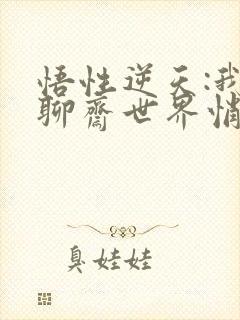 悟性逆天:我
聊齋世界悄
臭娃娃